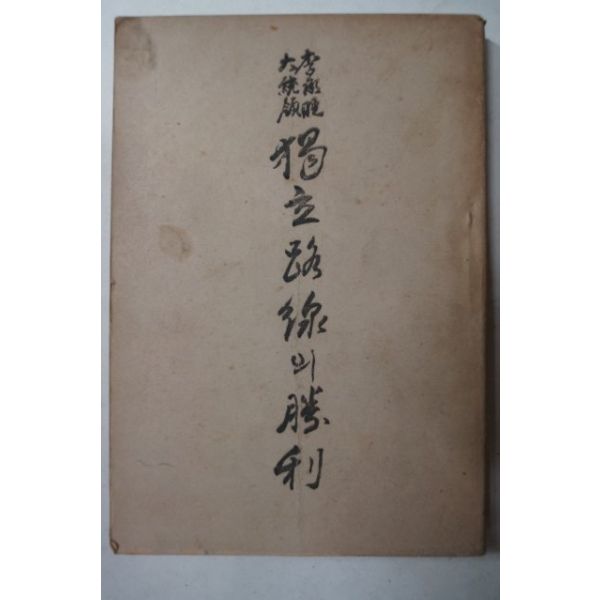 李承晩
大統領
獨立路線의勝利